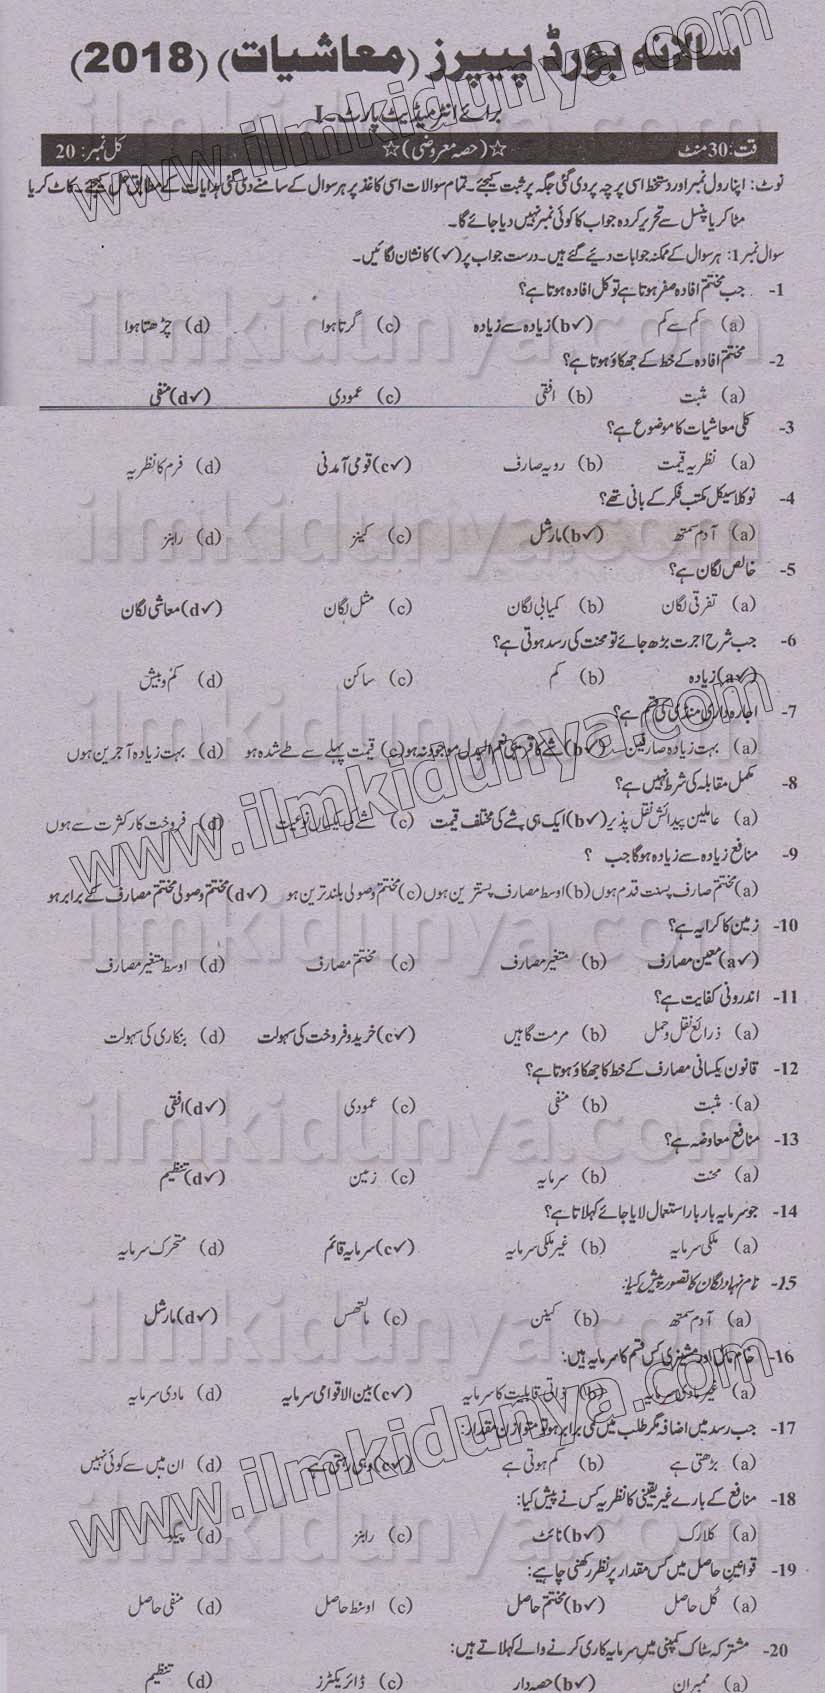 سالانہ بورڈ پیپرز (معاشیات) (2018)
برائے انٹرمیڈیٹ پارٹ۔I
قت: 30 منٹ ☆(حصہ معروضی)☆ کل نمبر: 20
نوٹ: اپنا رول نمبر اور دستخط اسی پرچہ پر دی گئی جگہ پر ثبت کیجئے۔ تمام سوالات اسی کاغذ پر ہر سوال کے سامنے دی گئی ہدایات کے مطابق حل کیجئے۔ کاٹ کر یا
مٹا کر یا پنسل سے تحریر کردہ جواب کا کوئی نمبر نہیں دیا جائے گا۔
سوال نمبر 1: ہر سوال کے ممکنہ جوابات دیئے گئے ہیں۔ درست جواب پر (✓) کا نشان لگائیں۔
1- جب مختتم افادہ صفر ہوتا ہے تو کل افادہ ہوتا ہے؟
(a) کم سے کم (b✓) زیادہ سے زیادہ (c) گرتا ہوا (d) چڑھتا ہوا
2- مختتم افادہ کے خط کے جھکاؤ ہوتا ہے؟
(a) مثبت (b) افقی (c) عمودی (d✓) منفی
3- کلی معاشیات کا موضوع ہے؟
(a) نظریہ قیمت (b) رویہ صارف (c✓) قومی آمدنی (d) فرم کا نظریہ
4- نوکلاسیکل مکتب فکر کے بانی تھے؟
(a) آدم سمتھ (b✓) مارشل (c) کینز (d) رابنز
5- خالص لگان ہے؟
(a) تفرقی لگان (b) کمیابی لگان (c) مثل لگان (d✓) معاشی لگان
6- جب شرح اجرت بڑھ جائے تو محنت کی رسد ہوتی ہے؟
(a✓) زیادہ (b) کم (c) ساکن (d) کم و بیش
7- اجارہ داری منڈی کی قسم ہے؟
(a) بہت زیادہ صارفین (b✓) شے کا قریبی نعم البدل موجود نہ ہو (c) قیمت پہلے سے طے شدہ ہو (d) بہت زیادہ آجرین ہوں
8- مکمل مقابلہ کی شرط نہیں ہے؟
(a) عاملین پیدائش نقل پذیر (b✓) ایک ہی شے کی مختلف قیمت (c) شے کی یکساں نوعیت (d) فروخت کار کثرت سے ہوں
9- منافع زیادہ سے زیادہ ہوگا جب ؟
(a) مختتم صارف پست قدم ہوں (b) اوسط مصارف پست ترین ہوں (c) مختتم وصولی بلند ترین ہو (d✓) مختتم وصولی مختتم مصارف کے برابر ہو
10- زمین کا کرایہ ہے؟
(a✓) معین مصارف (b) متغیر مصارف (c) مختتم مصارف (d) اوسط متغیر مصارف
11- اندرونی کفایت ہے؟
(a) ذرائع نقل و حمل (b) مرمت گاہیں (c✓) خرید و فروخت کی سہولت (d) بنکاری کی سہولت
12- قانون یکسانی مصارف کے خط کا جھکاؤ ہوتا ہے؟
(a) مثبت (b) منفی (c) عمودی (d✓) افقی
13- منافع معاوضہ ہے؟
(a) محنت (b) سرمایہ (c) زمین (d✓) تنظیم
14- جو سرمایہ بار بار استعمال لایا جائے کہلاتا ہے؟
(a) ملکی سرمایہ (b) غیر ملکی سرمایہ (c✓) سرمایہ قائم (d) متحرک سرمایہ
15- نام نہاد لگان کا تصور پیش کیا:
(a) آدم سمتھ (b) کینن (c) مالتھس (d✓) مارشل
16- خام مال اور مشینری کس قسم کا سرمایہ ہیں:
(a) غیر مادی سرمایہ (b) ذاتی قابلیت کا سرمایہ (c✓) بین الاقوامی سرمایہ (d) مادی سرمایہ
17- جب رسد میں اضافہ مگر طلب میں کمی برابر ہو تو متوازن مقدار:
(a) بڑھتی ہے (b) کم ہوتی ہے (c✓) وہی رہتی ہے (d) ان میں سے کوئی نہیں
18- منافع کے بارے غیر یقینی کا نظریہ کس نے پیش کیا:
(a) کلارک (b✓) نائٹ (c) رابنز (d) پیگو
19- قوانین حاصل میں کس مقدار پر نظر رکھنی چاہیے:
(a) کُل حاصل (b✓) مختتم حاصل (c) اوسط حاصل (d) منفی حاصل
20- مشترکہ سٹاک کمپنی میں سرمایہ کاری کرنے والے کہلاتے ہیں:
(a) ممبران (b✓) حصہ دار (c) ڈائریکٹرز (d) تنظیم
www.ilmkidunya.com
www.ilmkidunya.com
www.ilmkidunya.com
ilmkidunya.com
ilmkidunya.com
ilmkidunya.com
ilmkidunya.com
ilmkidunya.com
ilmkidunya.com
ilmkidunya.com
ilmkidunya.com